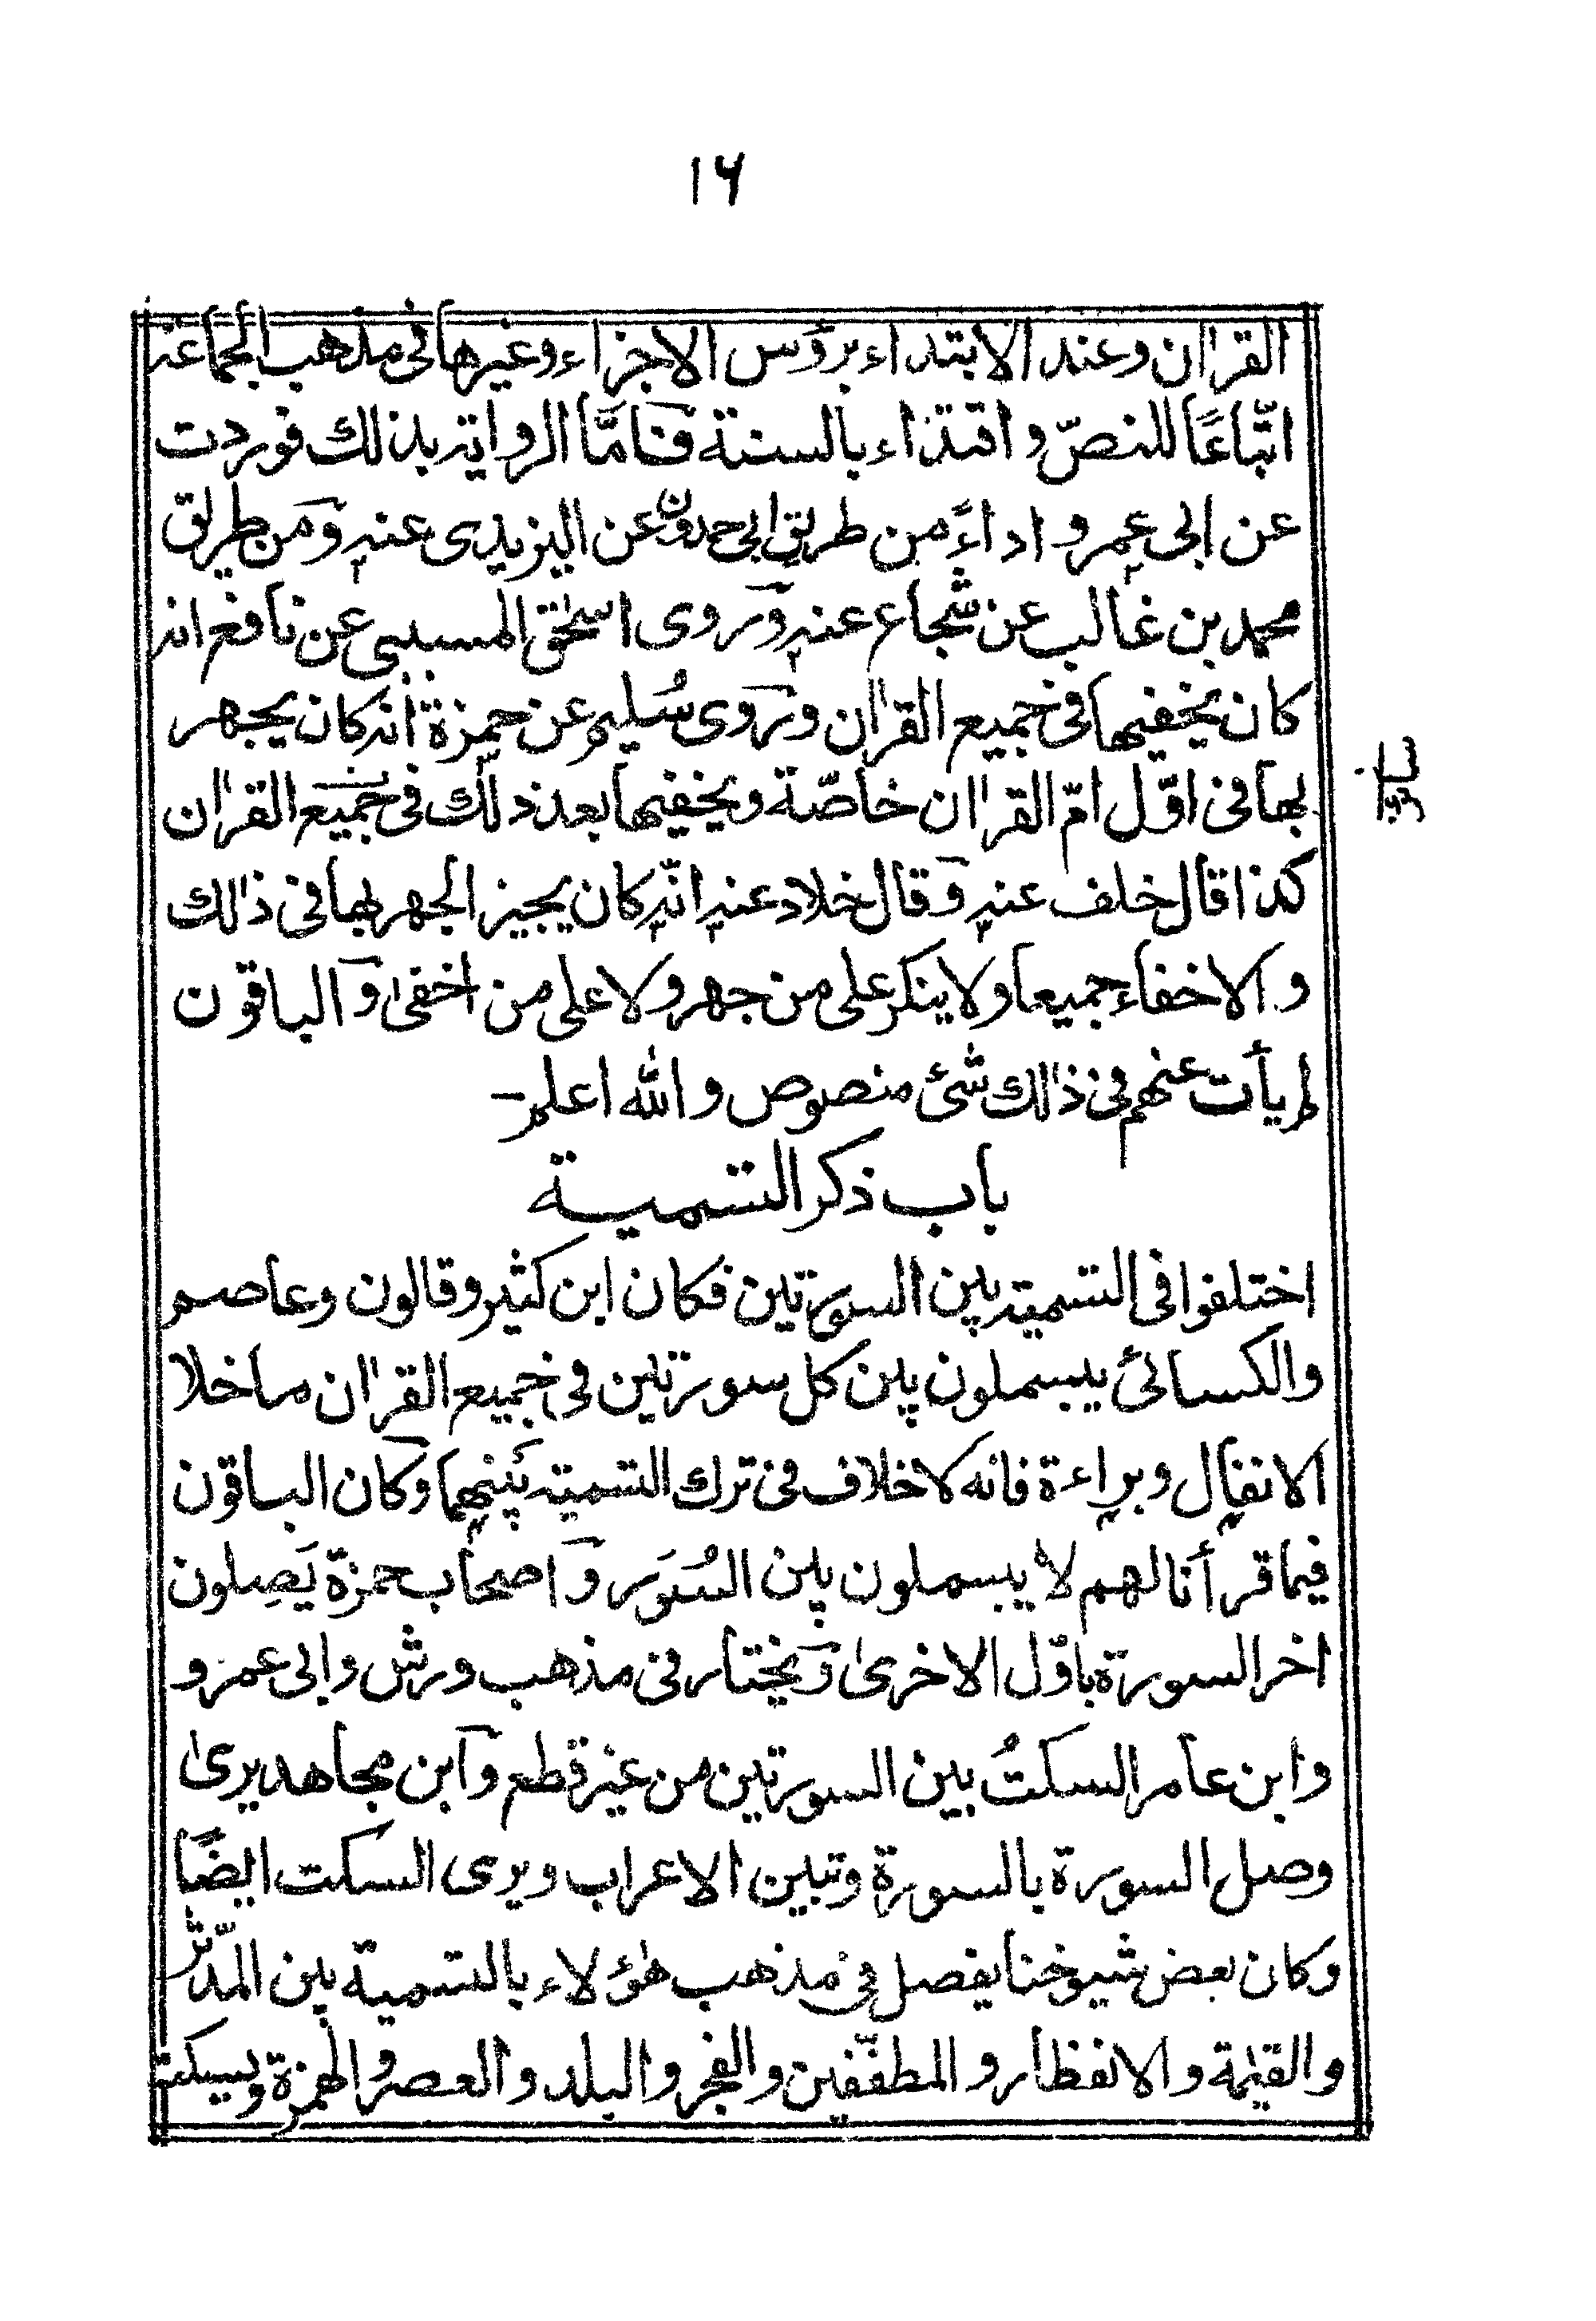 ۱۶
القراٰن وعند الابتداء برؤس الاجزاء وغيرها فى مذهب الجماعة
اتّباعًا للنصّ واقتداء بالسنة فَاَمَّا الرواية بذلك فوردت
عن ابى عمرو اداءً من طريق ابى حمدون عن اليزيدى عنه ومن طريق
محمد بن غالب عن شجاع عنه وروى اسحٰق المسيبى عن نافع انه
كان يخفيها فى جميع القراٰن وروى سُليم عن حمزة انه كان يجهر
بها فى اوّل امّ القراٰن خاصّة ويخفيها بعد ذلك فى جميع القراٰن
كذا قال خلف عنه وقال خلاد عنه انّه كان يجيز الجهر بها فى ذٰلك
والاخفاء جميعا ولا ينكر على من جهر ولا على من اخفىٰ والباقون
لم يأت عنهم فى ذٰلك شئ منصوص والله اعلم-
باب ذكر التسمية
اختلفوا فى التسمية بين السورتين فكان ابن كثير وقالون وعاصم
والكسائى يبسملون بين كل سورتين فى جميع القراٰن ما خلا
الانفال وبراءة فانه لا خلاف فى ترك التسمية بينهما وكان الباقون
فيما قرأنا لهم لا يبسملون بين السُوَر واصحاب حمزة يَصِلون
اخر السورة باوّل الاخرىٰ ويختار فى مذهب ورش وابى عمرو
وابن عامر السكتُ بين السورتين من غير قطع وابن مجاهد يرىٰ
وصل السورة بالسورة وتبين الاعراب ويرى السكت ايضًا
وكان بعض شيوخنا يفصل فى مذهب هٰؤلاء بالتسمية بين المدّثر
والقيٰمة والانفطار والمطففّين والفجر والبلد والعصر والهمزة ويسكت